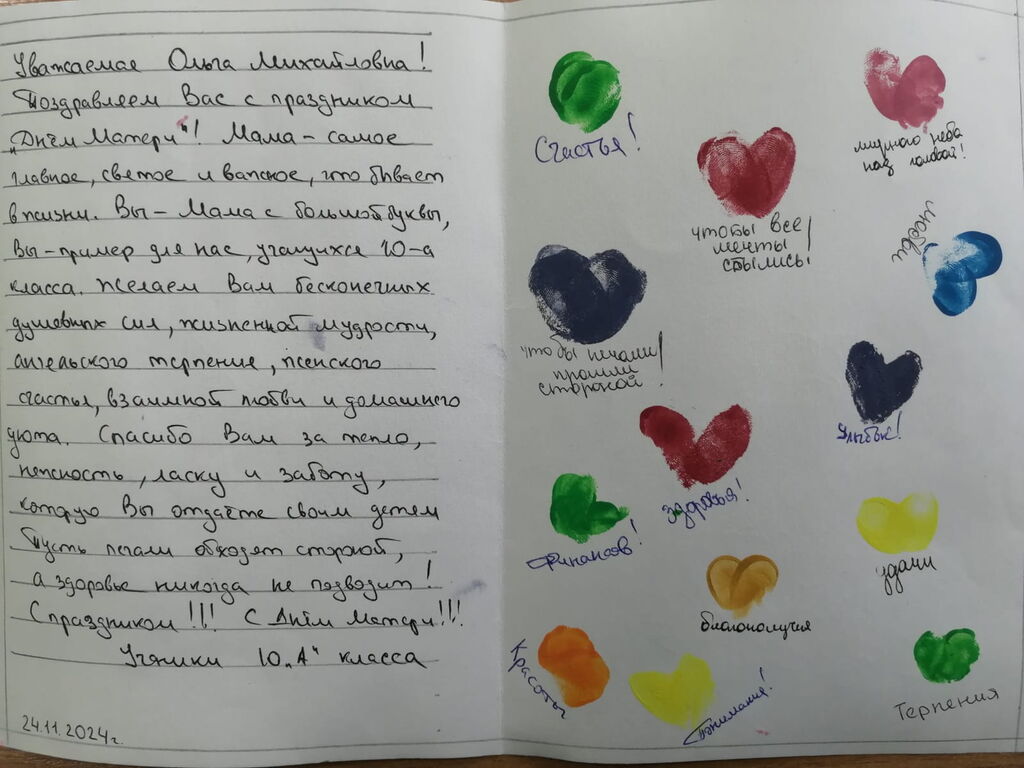 Уважаемая Ольга Михайловна!
Поздравляем Вас с праздником
„Днём Матери"! Мама – самое
главное, светлое и важное, что бывает
в жизни. Вы – Мама с большой буквы,
Вы – пример для нас, учащихся 10-а
класса. Желаем Вам бесконечных
душевных сил, жизненной мудрости,
ангельского терпения, женского
счастья, взаимной любви и домашнего
уюта. Спасибо Вам за тепло,
нежность, ласку и заботу,
которую Вы отдаёте своим детям
Пусть печали обходят стороной,
а здоровье никогда не подводит!
С праздником!!! С Днём Матери!!!
Ученики 10 „А" класса
24.11.2024г.
Счастья!
мирного неба
над головой!
чтобы все
мечты
сбылись!
любви
чтобы печали
прошли
стороной!
Улыбок!
здоровья!
Финансов!
удачи
благополучия
Красоты
Понимания!
Терпения